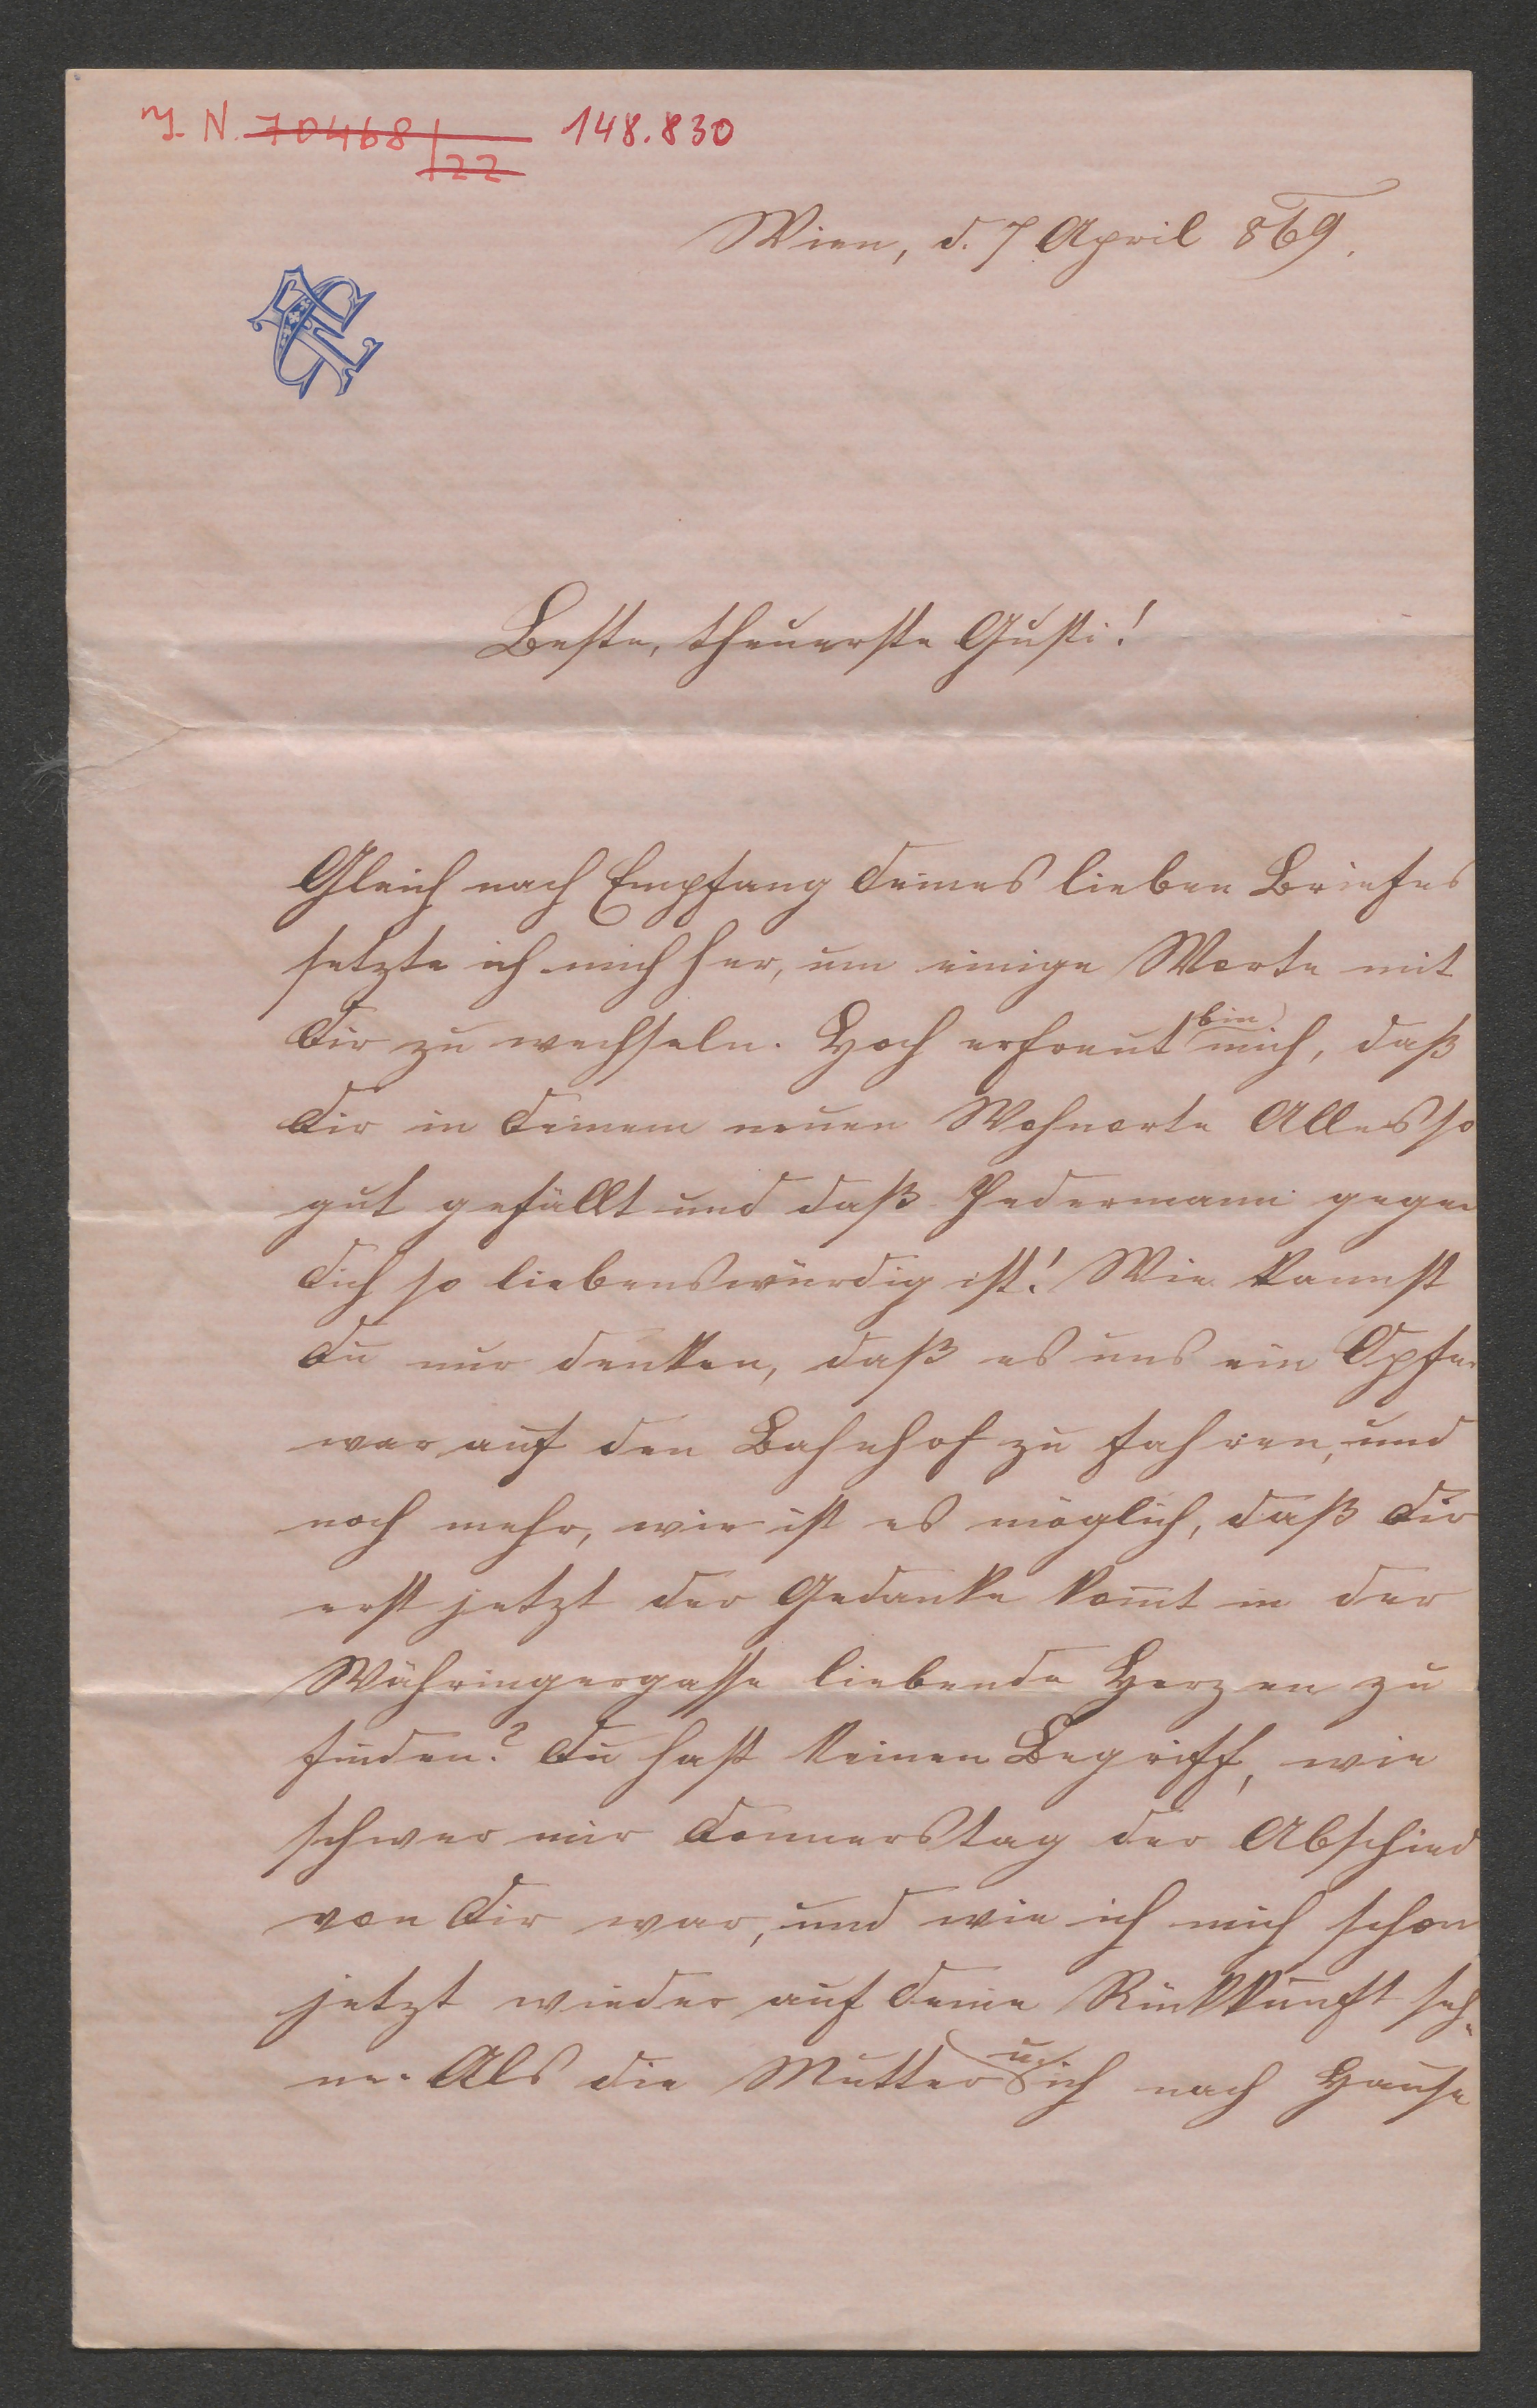 I. N. 70468/22 148.830
Wien, d. 7 April 869.
Beste, theuerste Gusti!
Gleich nach Empfang Deines lieben Briefes
setzte ich mich her, um einige Worte mit
Dir zu wechseln. Hoch erfreut bin mich, daß
Dir in Deinem neuen Wohnorte Alles so
gut gefällt und daß Jedermann gegen
Dich so liebenswürdig ist! Wie kannst
Du nur denken, daß es uns ein Opfer
war auf den Bahnhof zu fahren, und
noch mehr, wie ist es möglich, daß Dir
erst jetzt der Gedanke kom̄t in der
Währingergasse liebende Herzen zu
finden? Du hast keinen Begriff, wie
schwer mir Donnerstag der Abschied
von Dir war, und wie ich mich schon
jetzt wieder auf Deine Rückkunft seh-
ne. Als die Mutter u ich nach Hause